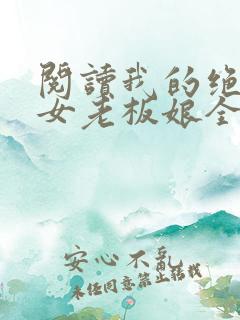 閱讀我的绝
女老板娘全
安心不亂
未经同意禁止转载